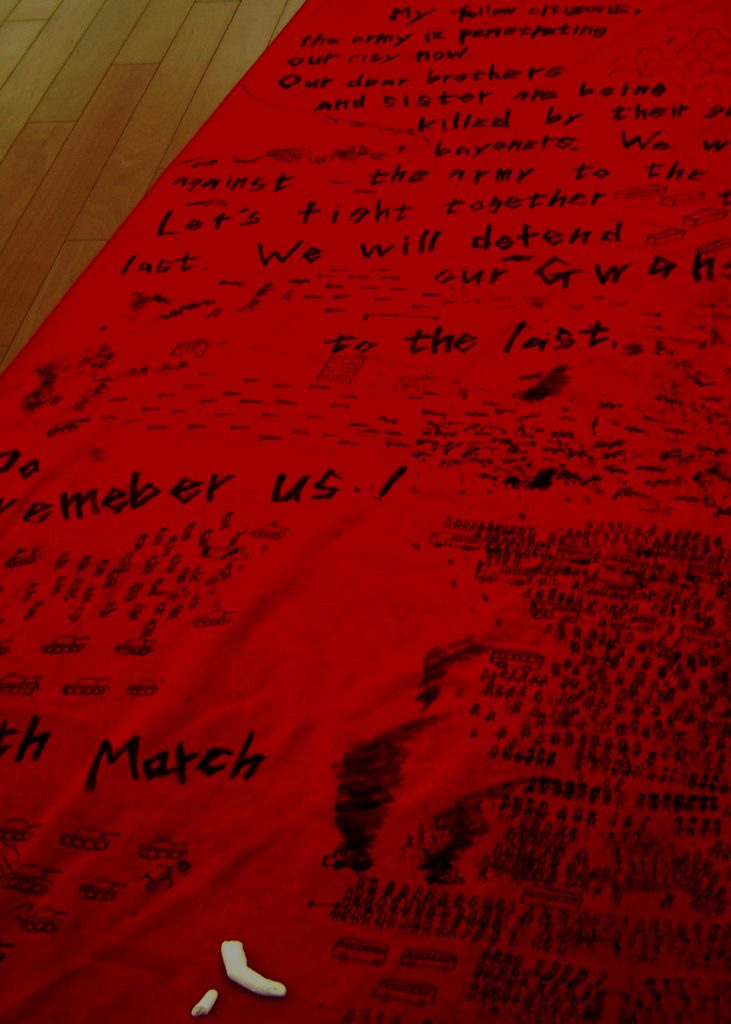 My fellow citizens,
the army is penetrating
our city now.
Our dear brothers
and sister are being
killed by their
bayonets. We
against the army to the
Let's fight together
last. We will defend
our Gwan
to the last.
Do
remeber us. !
th March